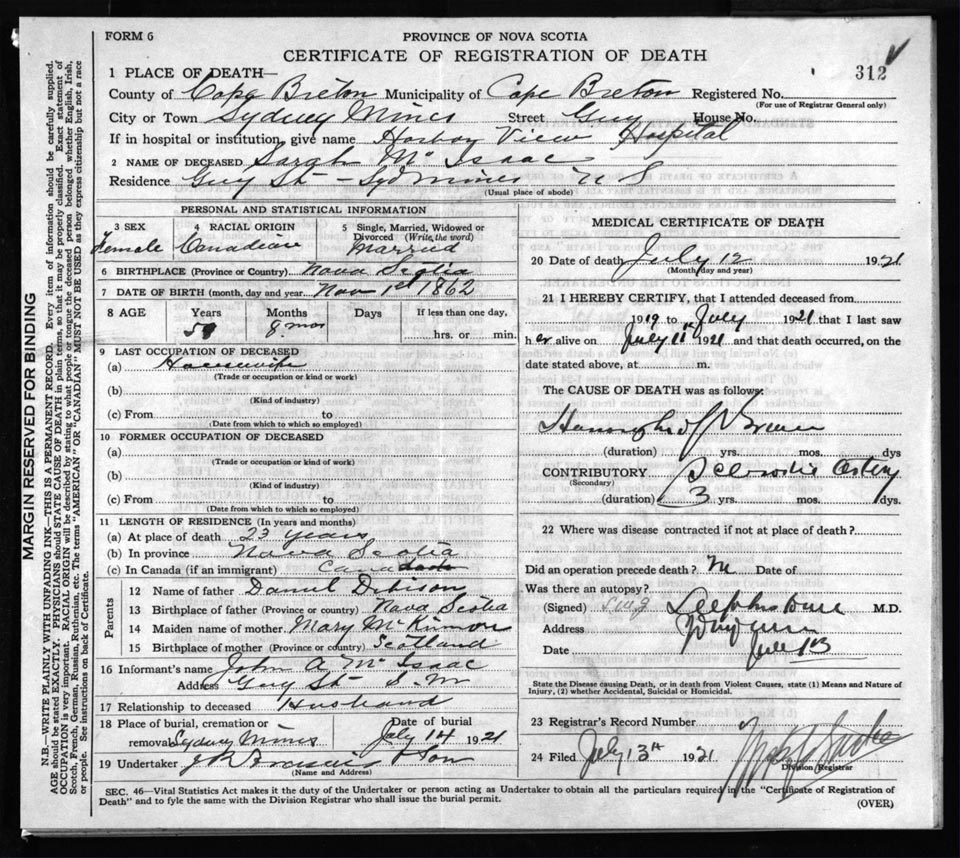 FORM 6
PROVINCE OF NOVA SCOTIA
CERTIFICATE OF REGISTRATION OF DEATH
312
1 PLACE OF DEATH—
County of Cape Breton Municipality of Cape Breton Registered No.
(For use of Registrar General only)
City or Town Sydney Mines Street Guy House No.
If in hospital or institution, give name Harbor View Hospital
2 NAME OF DECEASED Sarah Mc Isaac
Residence Guy St - Syd Mines N S
(Usual place of abode)
PERSONAL AND STATISTICAL INFORMATION
3 SEX Female
4 RACIAL ORIGIN Canadian
5 Single, Married, Widowed or Divorced (Write the word) Married
6 BIRTHPLACE (Province or Country) Nova Scotia
7 DATE OF BIRTH (month, day and year) Nov 1st 1862
8 AGE Years Months Days If less than one day,
8 mos hrs. or min.
9 LAST OCCUPATION OF DECEASED
(a) Housewife
(Trade or occupation or kind or work)
(b)
(Kind of industry)
(c) From to
(Date from which to which so employed)
10 FORMER OCCUPATION OF DECEASED
(a)
(Trade or occupation or kind of work)
(b)
(Kind of industry)
(c) From to
(Date from which to which so employed)
11 LENGTH OF RESIDENCE (In years and months)
(a) At place of death 23 years
(b) In province Nova Scotia
(c) In Canada (if an immigrant) Canada
Parents
12 Name of father Daniel
13 Birthplace of father (Province or country) Nova Scotia
14 Maiden name of mother Mary McKinnon
15 Birthplace of mother (Province or country) Scotland
16 Informant's name John A Mc Isaac
Address Guy St S. M
17 Relationship to deceased Husband
18 Place of burial, cremation or removal Sydney Mines
Date of burial July 14 1921
19 Undertaker & Son
(Name and Address)
MEDICAL CERTIFICATE OF DEATH
20 Date of death July 12 1921
(Month, day and year)
21 I HEREBY CERTIFY, that I attended deceased from
1919 to July 1921 that I last saw
her alive on July 11th 1921 and that death occurred, on the
date stated above, at m.
The CAUSE OF DEATH was as follows:
(duration) yrs. mos. dys
CONTRIBUTORY
(Secondary)
(duration) 3 yrs. mos. dys.
22 Where was disease contracted if not at place of death?
Did an operation precede death? Date of
Was there an autopsy?
(Signed) M.D.
Address
Date July
State the Disease causing Death, or in death from Violent Causes, state (1) Means and Nature of Injury, (2) whether Accidental, Suicidal or Homicidal.
23 Registrar's Record Number
24 Filed July 13th 1921
Division Registrar
SEC. 46—Vital Statistics Act makes it the duty of the Undertaker or person acting as Undertaker to obtain all the particulars required in the "Certificate of Registration of
Death" and to fyle the same with the Division Registrar who shall issue the burial permit.
(OVER)
MARGIN RESERVED FOR BINDING
N.B.—WRITE PLAINLY WITH UNFADING INK—THIS IS A PERMANENT RECORD. Every item of information should be carefully supplied.
AGE should be stated EXACTLY. PHYSICIANS should STATE CAUSE OF DEATH in plain terms, so that it may be properly classified. Exact statement of
OCCUPATION is very important. RACIAL ORIGIN will be described by stating to what people or tongue the deceased person belonged whether English, Irish,
Scotch, French, German, Russian, Ruthenian, etc. The terms "AMERICAN" OR "CANADIAN" MUST NOT BE USED as they express citizenship but not a race
or people. See instructions on back of Certificate.